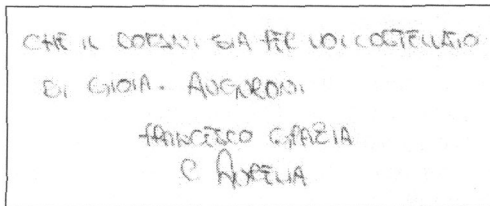 CHE IL DOMANI SIA PER VOI COSTELLATO
DI GIOIA. AUGURONI
FRANCESCO GRAZIA
E AURELIA